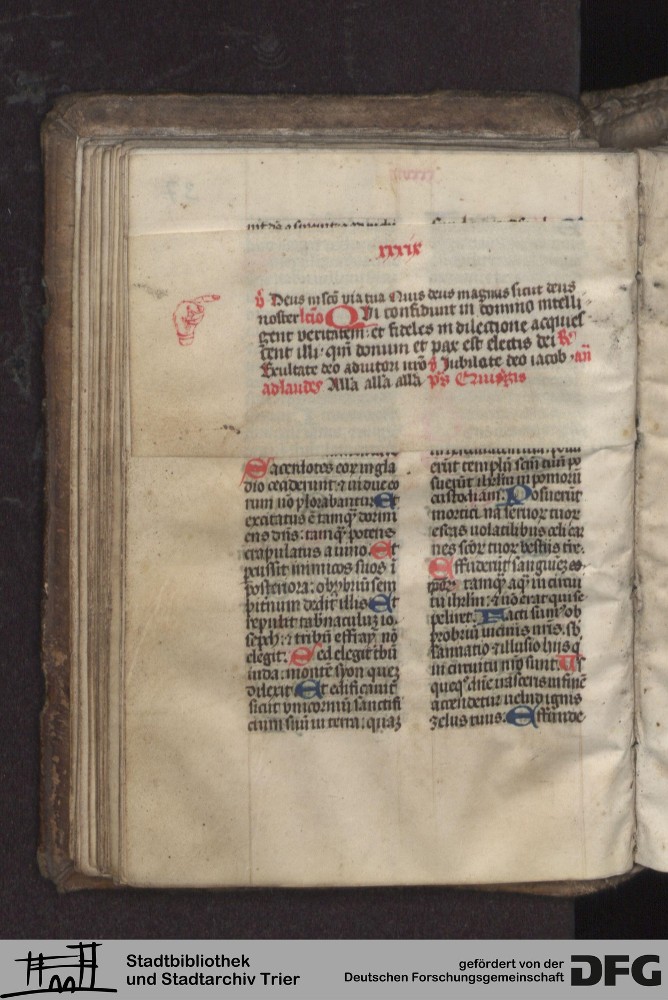 xxxix
v Deus in sco via tua Quis deus magnus sicut deus
noster lctio Qui confidunt in domino intelli
gent veritatem: et fideles in dilectione acquies
cent illi· qm donum et pax est electis dei R
Exultate deo adiutori nro v Jubilate deo iacob· añ
ad laudes Alla alla alla ps
Sacerdotes eor in gla
dio ceciderunt: & vidue eo
rum nō plorabantur. Et
excitatus ē tamq dormi
ens dñs: tamq potens
crapulatus a vino. Et
percussit inimicos suos ī
posteriora: obpbrium sem
pitnum dedit illis. Et
repulit tabnaculuz io
seph: & tribū effray nō
elegit. Sed elegit tbū
iuda: montē syon quez
dilexit. Et edificauit
sicut vnicorniū sanctifi
cium suū in terra: quaz
erūt templū scm tuū po
suerūt ihrlm in pomorū
custodiam. Posuerūt
morticina seruor tuor
escas volatilibus celi car
nes scor tuor bestiis tre.
Effuderūt sanguiez eo
tamq aqm in circui
tu ihrlm: & nō erat qui se
peliret. Facti sum ob
probriū vicinis nris. sb
sannatio & illusio hiis q
in circuitu nro sunt. Us
quequo dñe irasceris in finē
accendetur uelud ignis
zelus tuus. Effunde
Stadtbibliothek
und Stadtarchiv Trier
gefördert von der
Deutschen Forschungsgemeinschaft
DFG